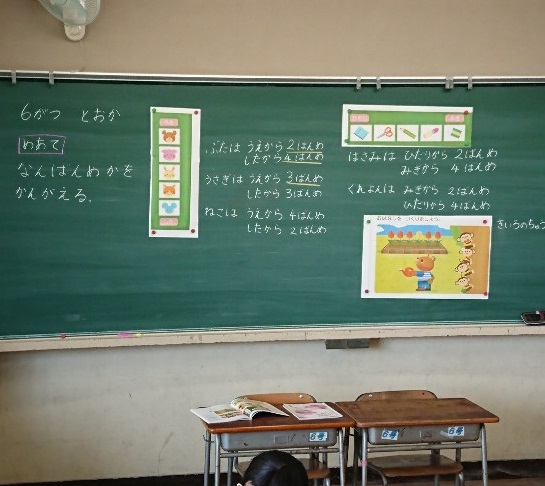 6がつ とおか
めあて
なんばんめかを
かんがえる。
ぶたは うえから 2ばんめ
したから 4ばんめ
うさぎは うえから 3ばんめ
したから 3ばんめ
ねこは うえから 4ばんめ
したから 2ばんめ
はさみは ひだりから 2ばんめ
みぎから 4ばんめ
くれよんは みぎから 2ばんめ
ひだりから 4ばんめ
おはなしを つくりましょう。
きいろのちゅう